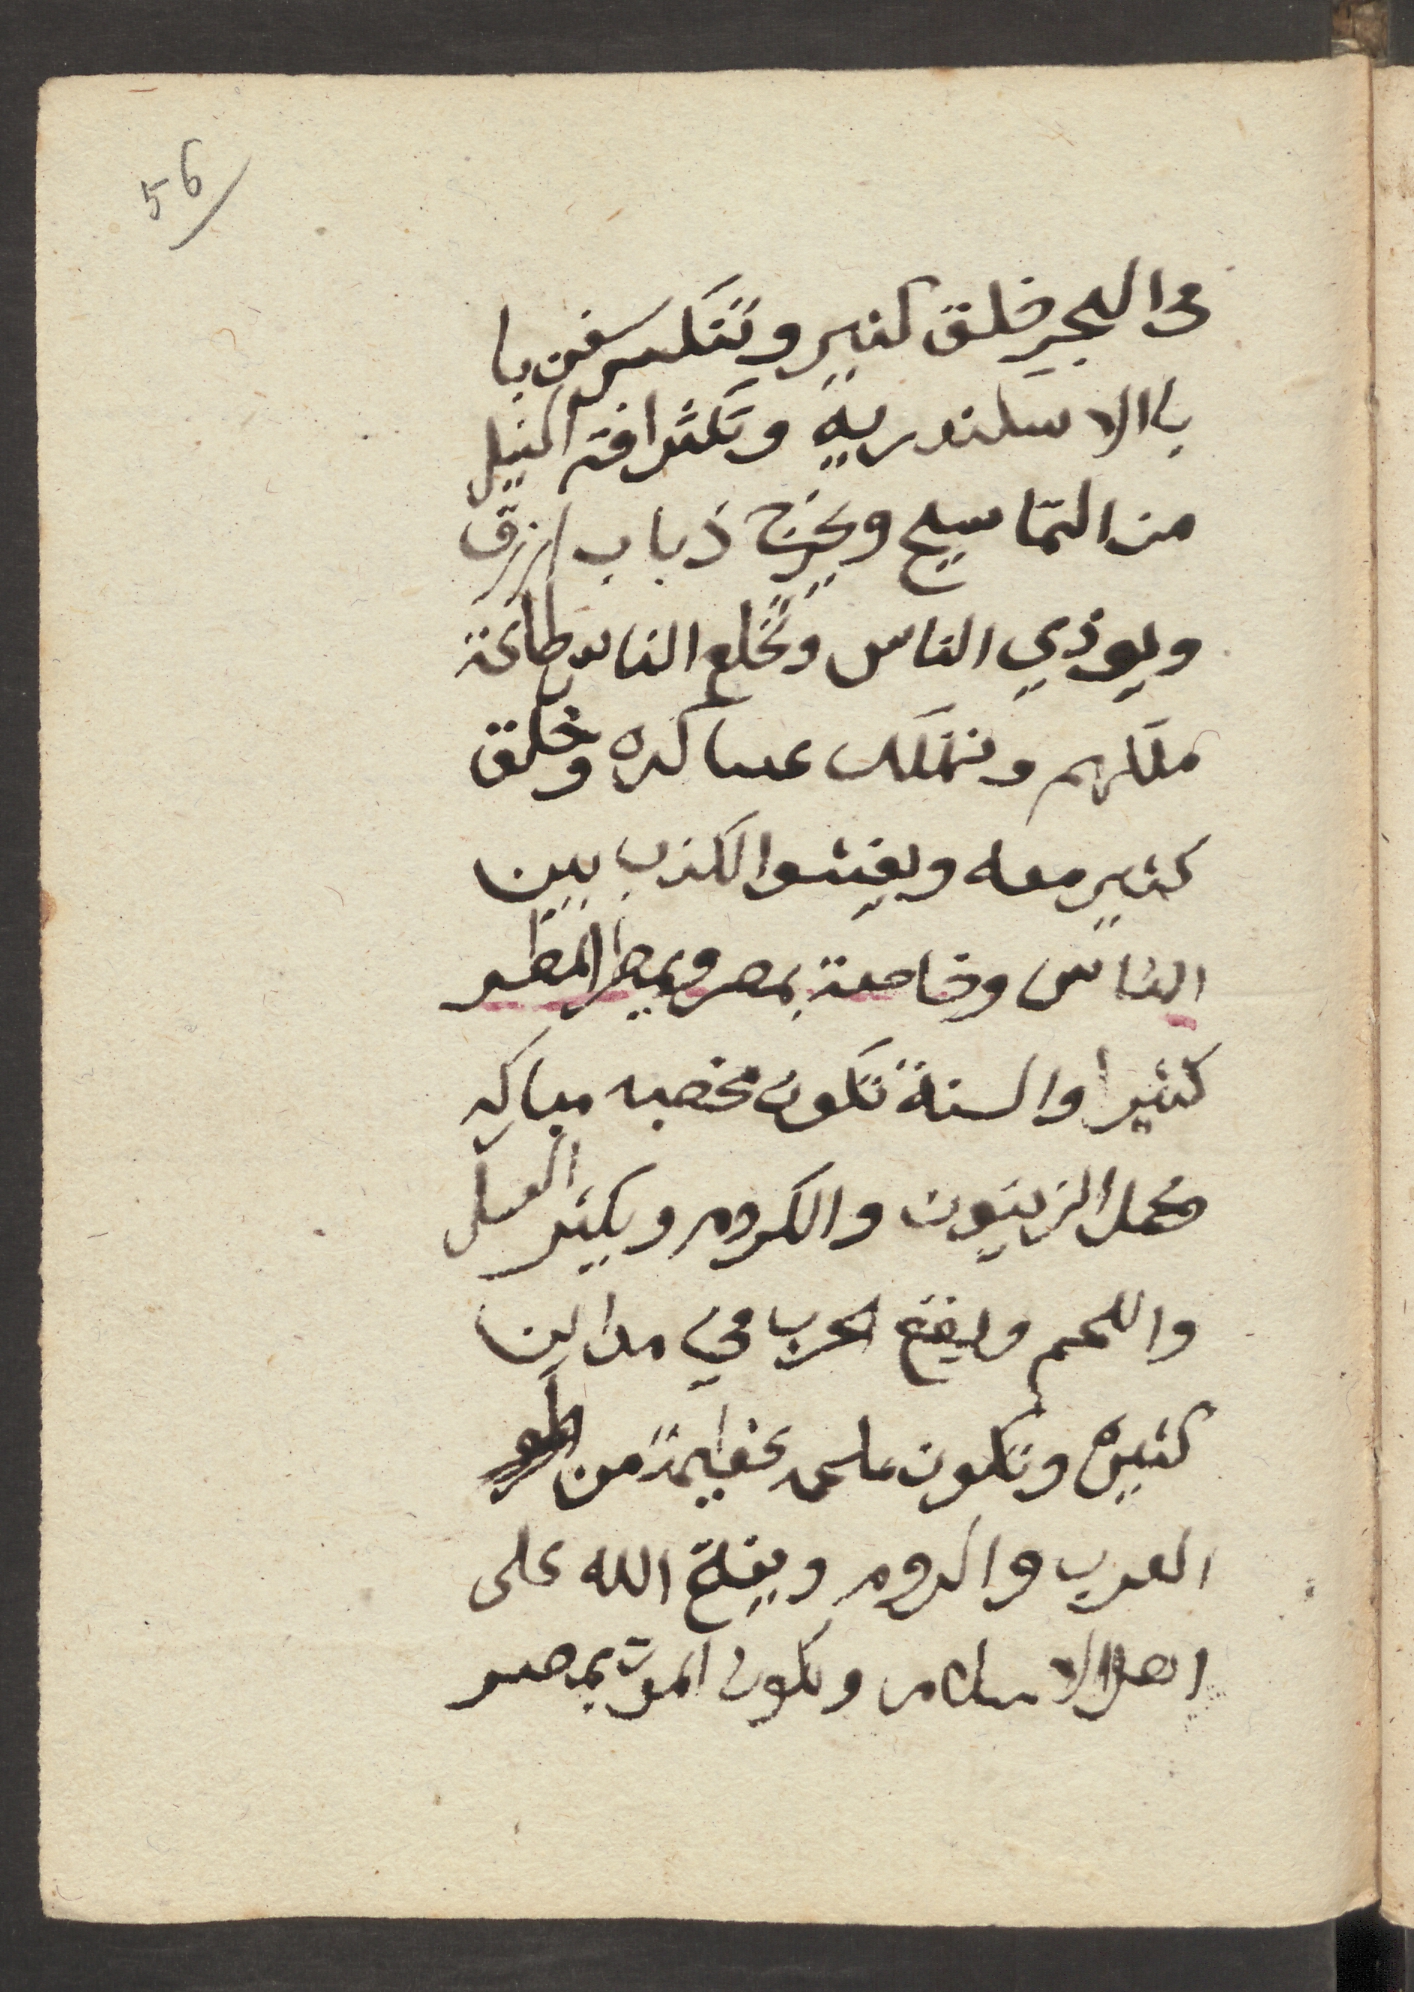 56
في البحر خلق كثير وتتكسر سفن با
باالاسكندرية وتكثر افة النيل
من التماسيح ويخرج ذباب ازرق
ويوذي الناس وتخلع الناس طاعة
ملكهم وتملك عساكره وخلق
كثير معه ويفشوا الكذب بين
الناس وخاصة بمصر ويمطر المطر
كثيرا والسنة تكون مخصبه مباركه
محمل الزيتون والكروم ويكثر العسل
واللحم ويقع الحرب في مداين
كثيرة وتكون ملحمه عظيمة من
العرب والروم ويفتح الله على
اهل الاسلام وتكون الموت بمصر